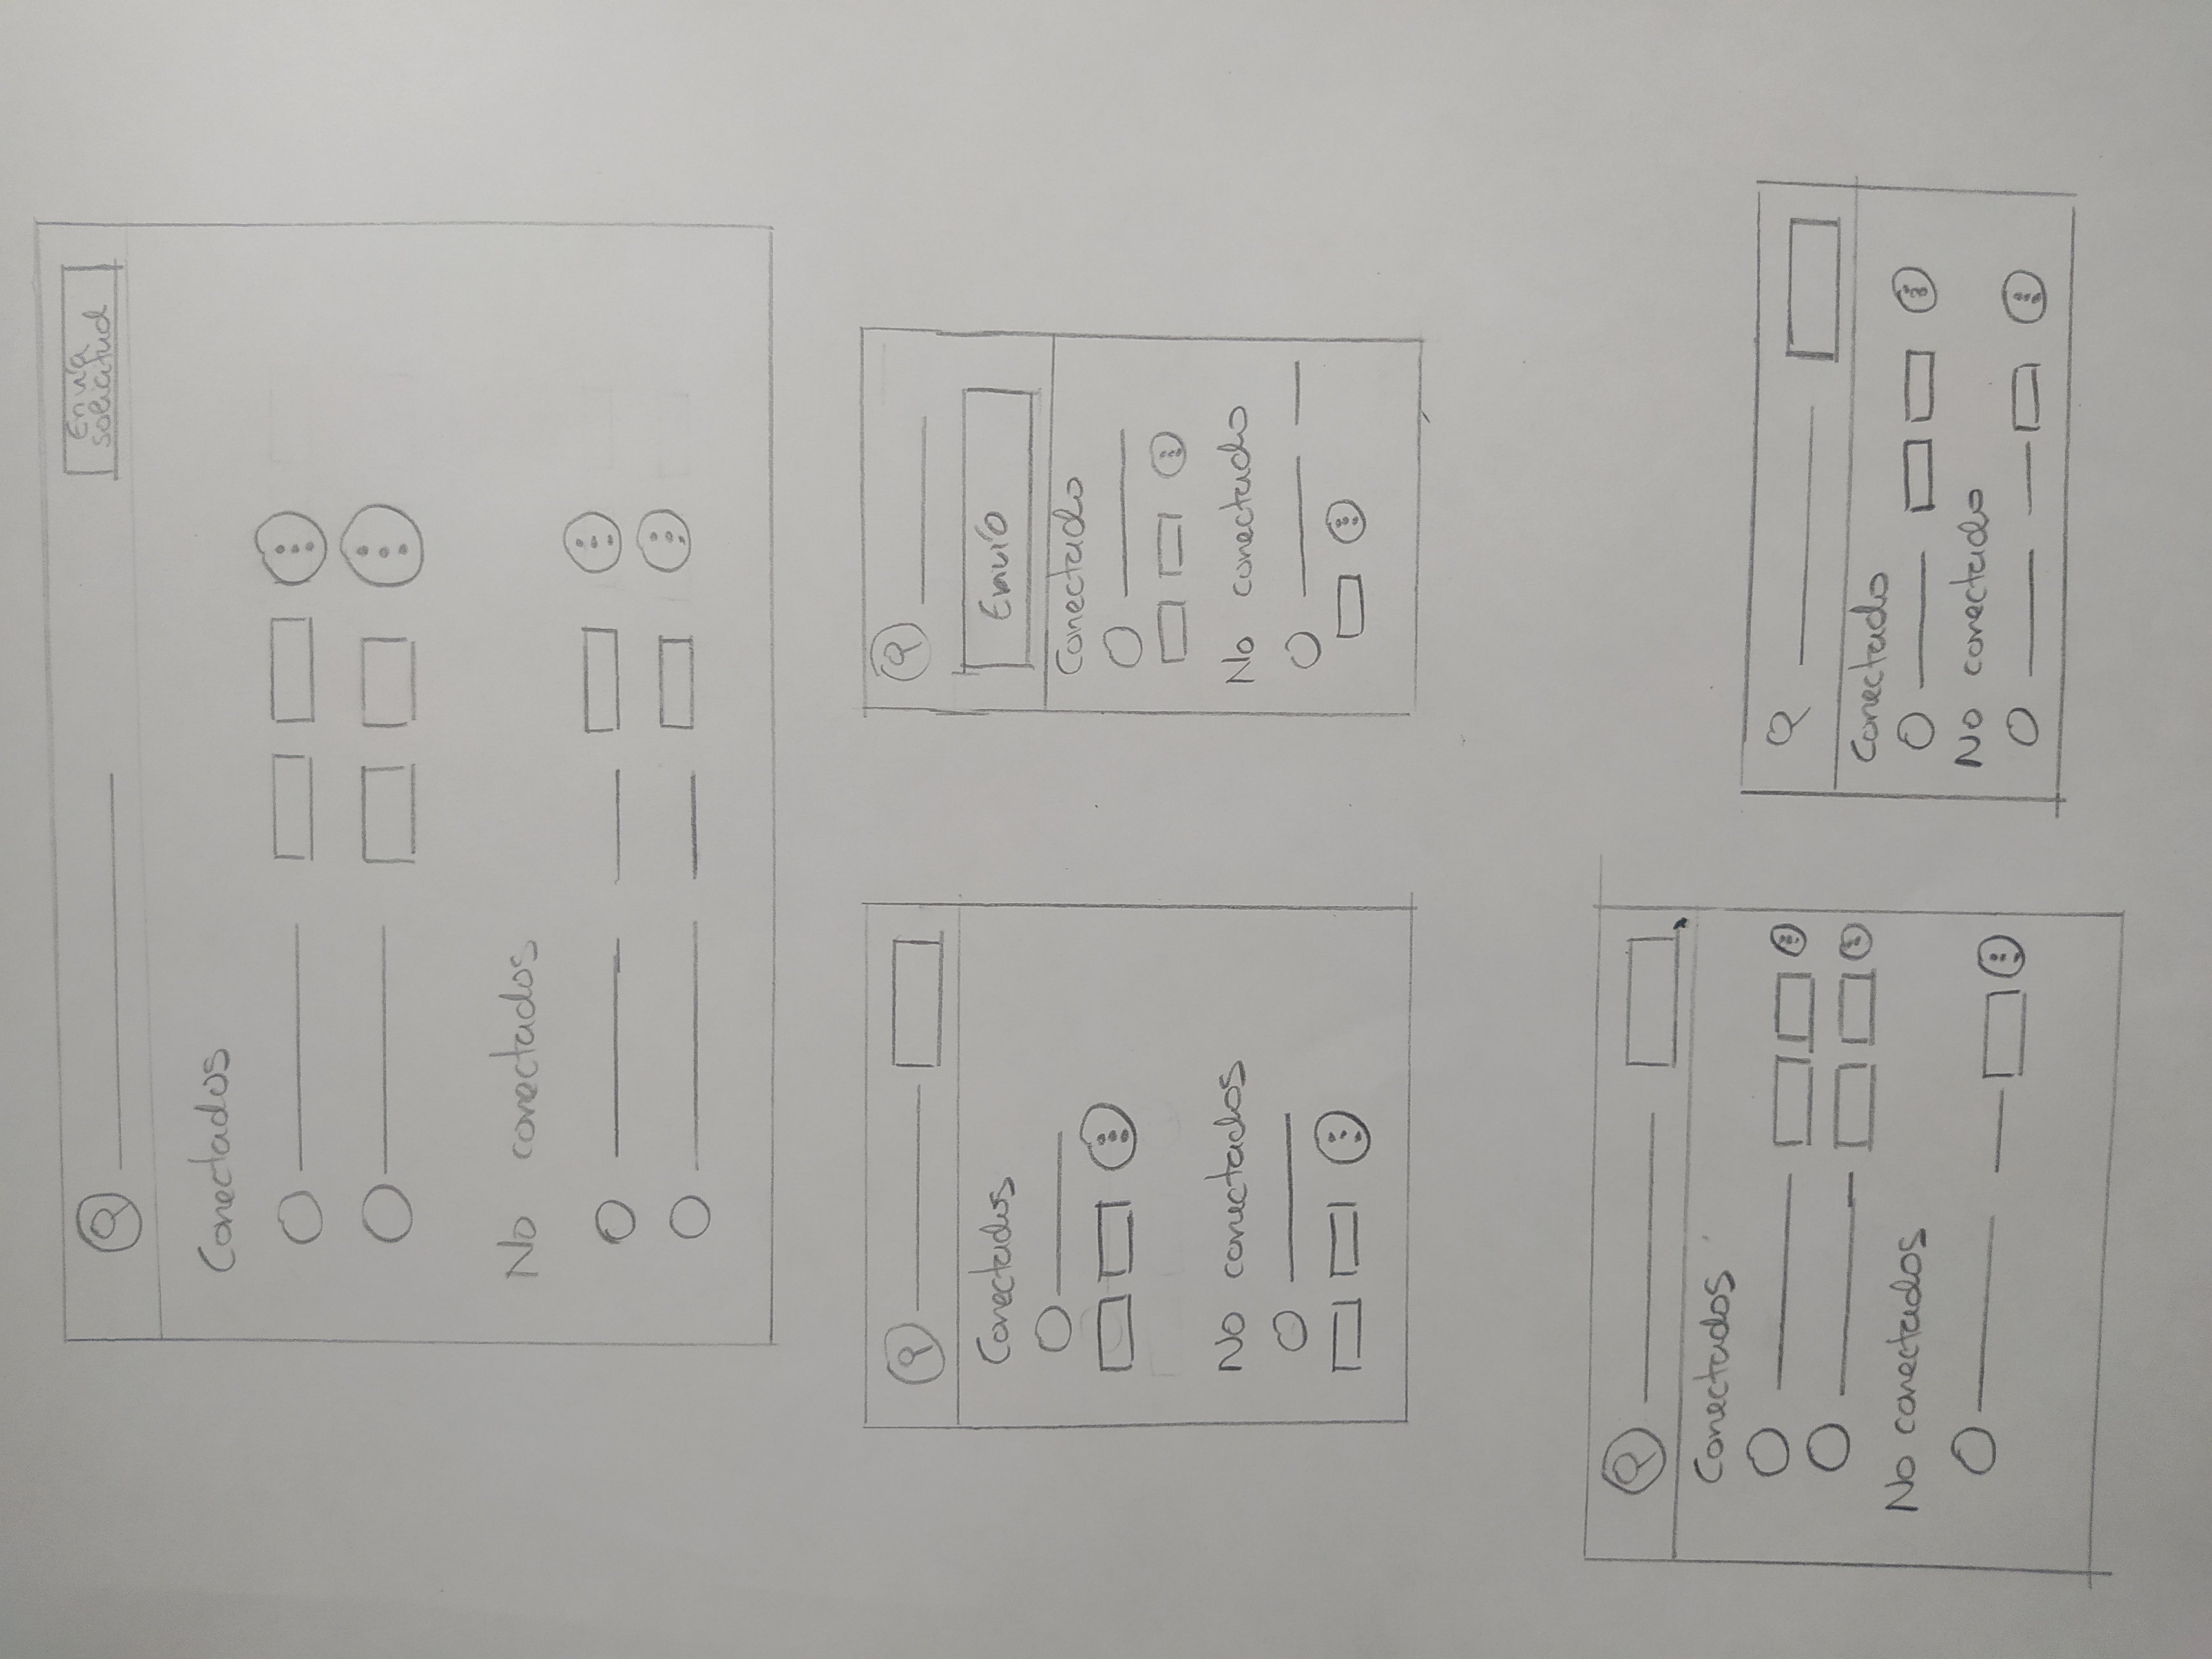 Envía
solicitud
Conectados
No conectados
Conectados
No conectados
Envío
Conectado
No conectado
Conectados
No conectados
Conectado
No conectado